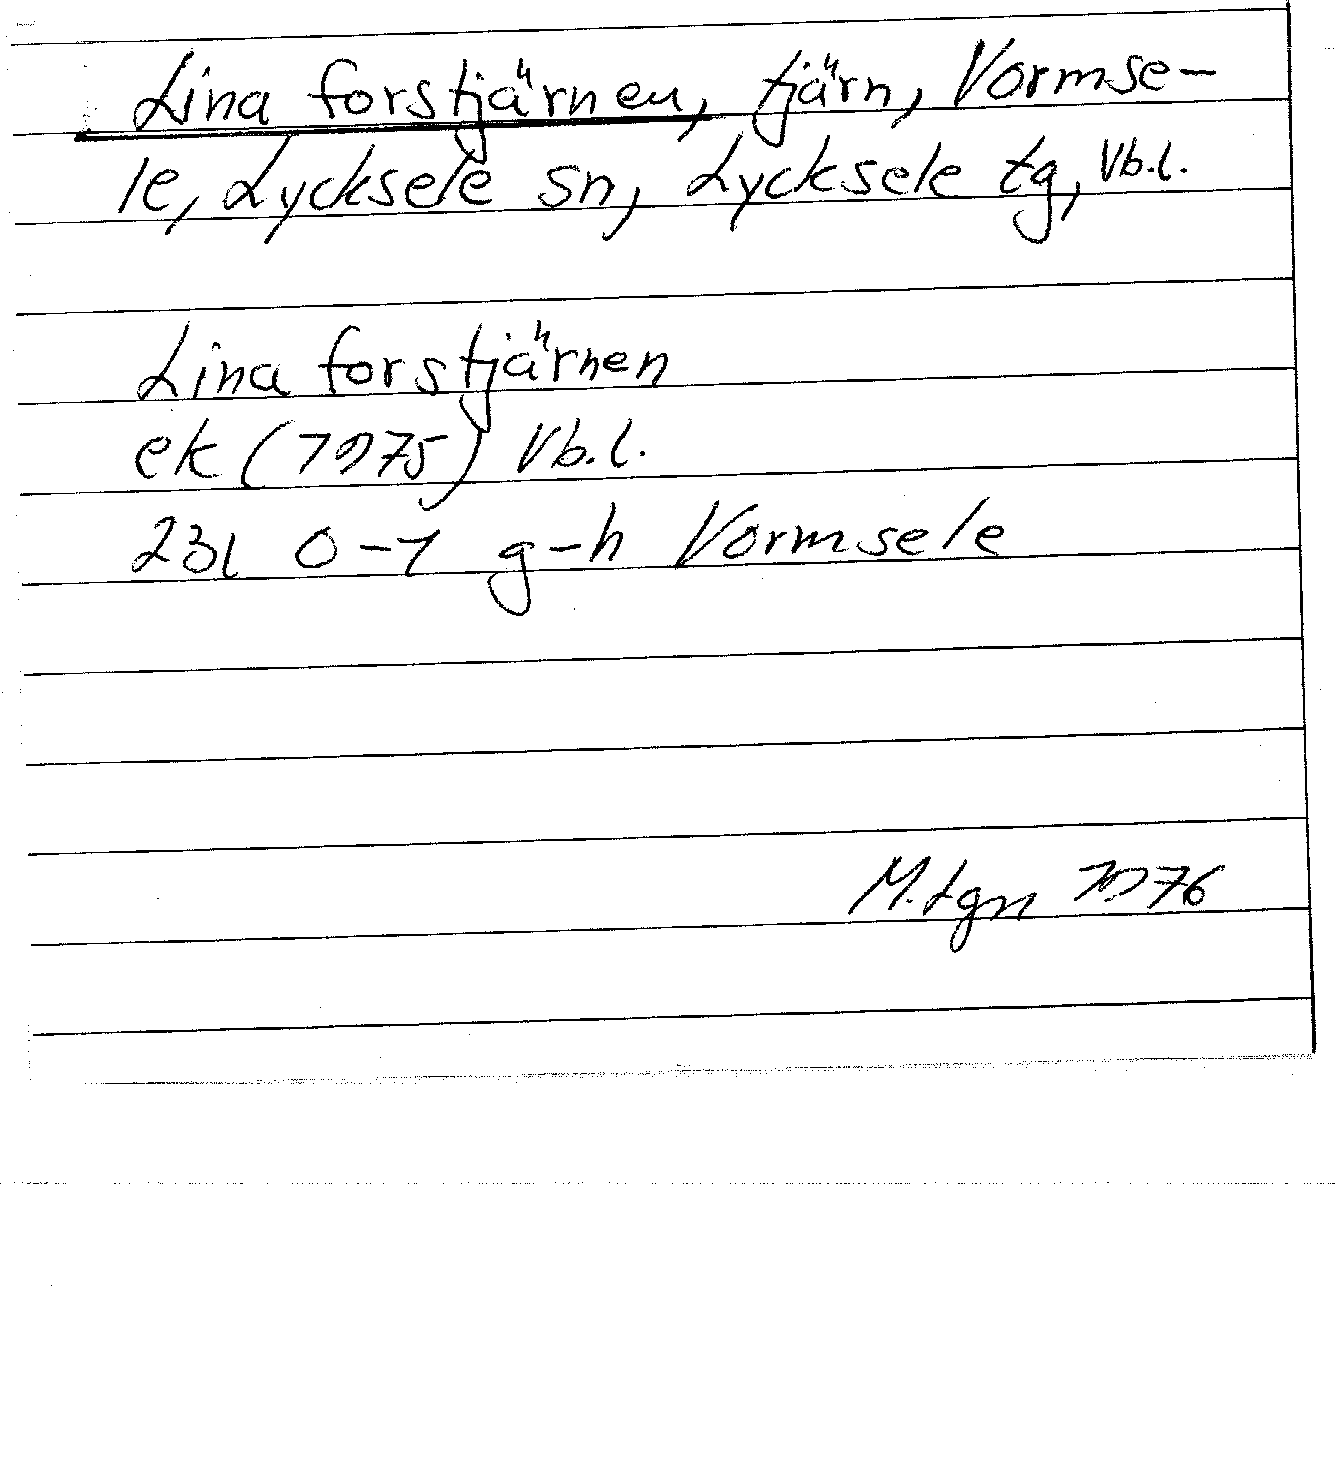 Lina forstjärnen, tjärn, Vormse-
le, Lycksele sn, Lycksele tg, Vb.l.
Lina forstjärnen
ek (1975) Vb.l.
23I 0-1 g-h Vormsele
M.Lgn 1976